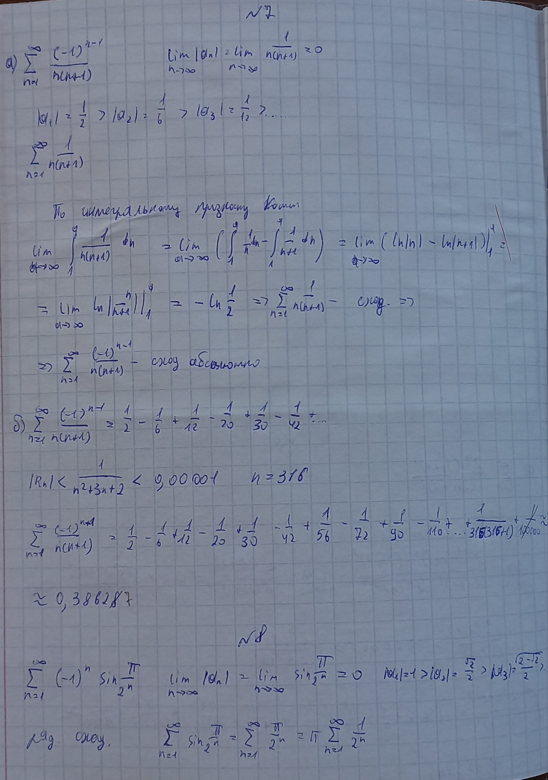 №7
а) ∑_{n=1}^{∞} (-1)^{n-1}/n(n+1)   lim_{n→∞} |a_n| = lim_{n→∞} 1/n(n+1) = 0
|a_1| = 1/2 > |a_2| = 1/6 > |a_3| = 1/12 > ...
∑_{n=1}^{∞} 1/n(n+1)
По интегральному признаку Коши
lim_{a→∞} ∫_1^a 1/n(n+1) dn = lim_{a→∞} (∫_1^a 1/n dn - ∫_1^a 1/(n+1) dn) = lim_{a→∞} (ln|n| - ln|n+1|)|_1^a =
= lim_{a→∞} ln|n/(n+1)||_1^a = -ln 1/2 ⇒ ∑_{n=1}^{∞} 1/n(n+1) - сход. ⇒
⇒ ∑_{n=1}^{∞} (-1)^{n-1}/n(n+1) - сход абсолютно
б) ∑_{n=1}^{∞} (-1)^{n-1}/n(n+1) = 1/2 - 1/6 + 1/12 - 1/20 + 1/30 - 1/42 + ...
|R_n| < 1/(n²+3n+2) < 0,00001   n = 316
∑_{n=1}^{∞} (-1)^{n+1}/n(n+1) = 1/2 - 1/6 + 1/12 - 1/20 + 1/30 - 1/42 + 1/56 - 1/72 + 1/90 - 1/110 + ... + 1/316(316+1) + ≈
≈ 0,386287
№8
∑_{n=1}^{∞} (-1)^n sin π/2^n   lim_{n→∞} |a_n| = lim_{n→∞} sin π/2^n = 0   |a_1| = 1 > |a_2| = √2/2 > |a_3| = √(2-√2)/2 >
ряд сход.   ∑_{n=1}^{∞} sin π/2^n = ∑_{n=1}^{∞} π/2^n = π ∑_{n=1}^{∞} 1/2^n